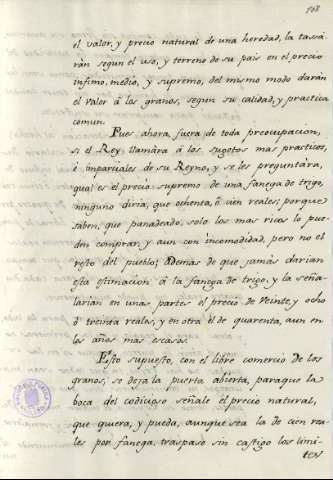 168
el valor, y precio natural de una heredad, la tasa-
ràn segun el uso, y terreno de su pais en el precio
infimo, medio, y supremo, del mismo modo daràn
el valor à los granos, segun su calidad, y practica
comun.
Pues ahora, fuera de toda preocupacion,
si el Rey llamára à los sugetos mas practicos,
è imparciales de su Reyno, y se les preguntára,
qual es el precio supremo de una fanega de trigo,
ninguno diria, que ochenta, ò cien reales; porque
saben, que panadeado, solo los mas ricos lo pue-
den comprar, y aun con incomodidad, pero no el
resto del pueblo; ademas de que jamàs darian
esta estimacion à la fanega de trigo, y la seña-
larian en unas partes el precio de veinte, y ocho
ò treinta reales, y en otra el de quarenta, aun en
los años mas escasos.
Esto supuesto, con el libre comercio de los
granos, se deja la puerta abierta, paraque la
boca del codicioso señale el precio natural,
que quiera, y pueda, aunque sea la de cien rea-
les por fanega, traspaso sin castigo los limi-
tes